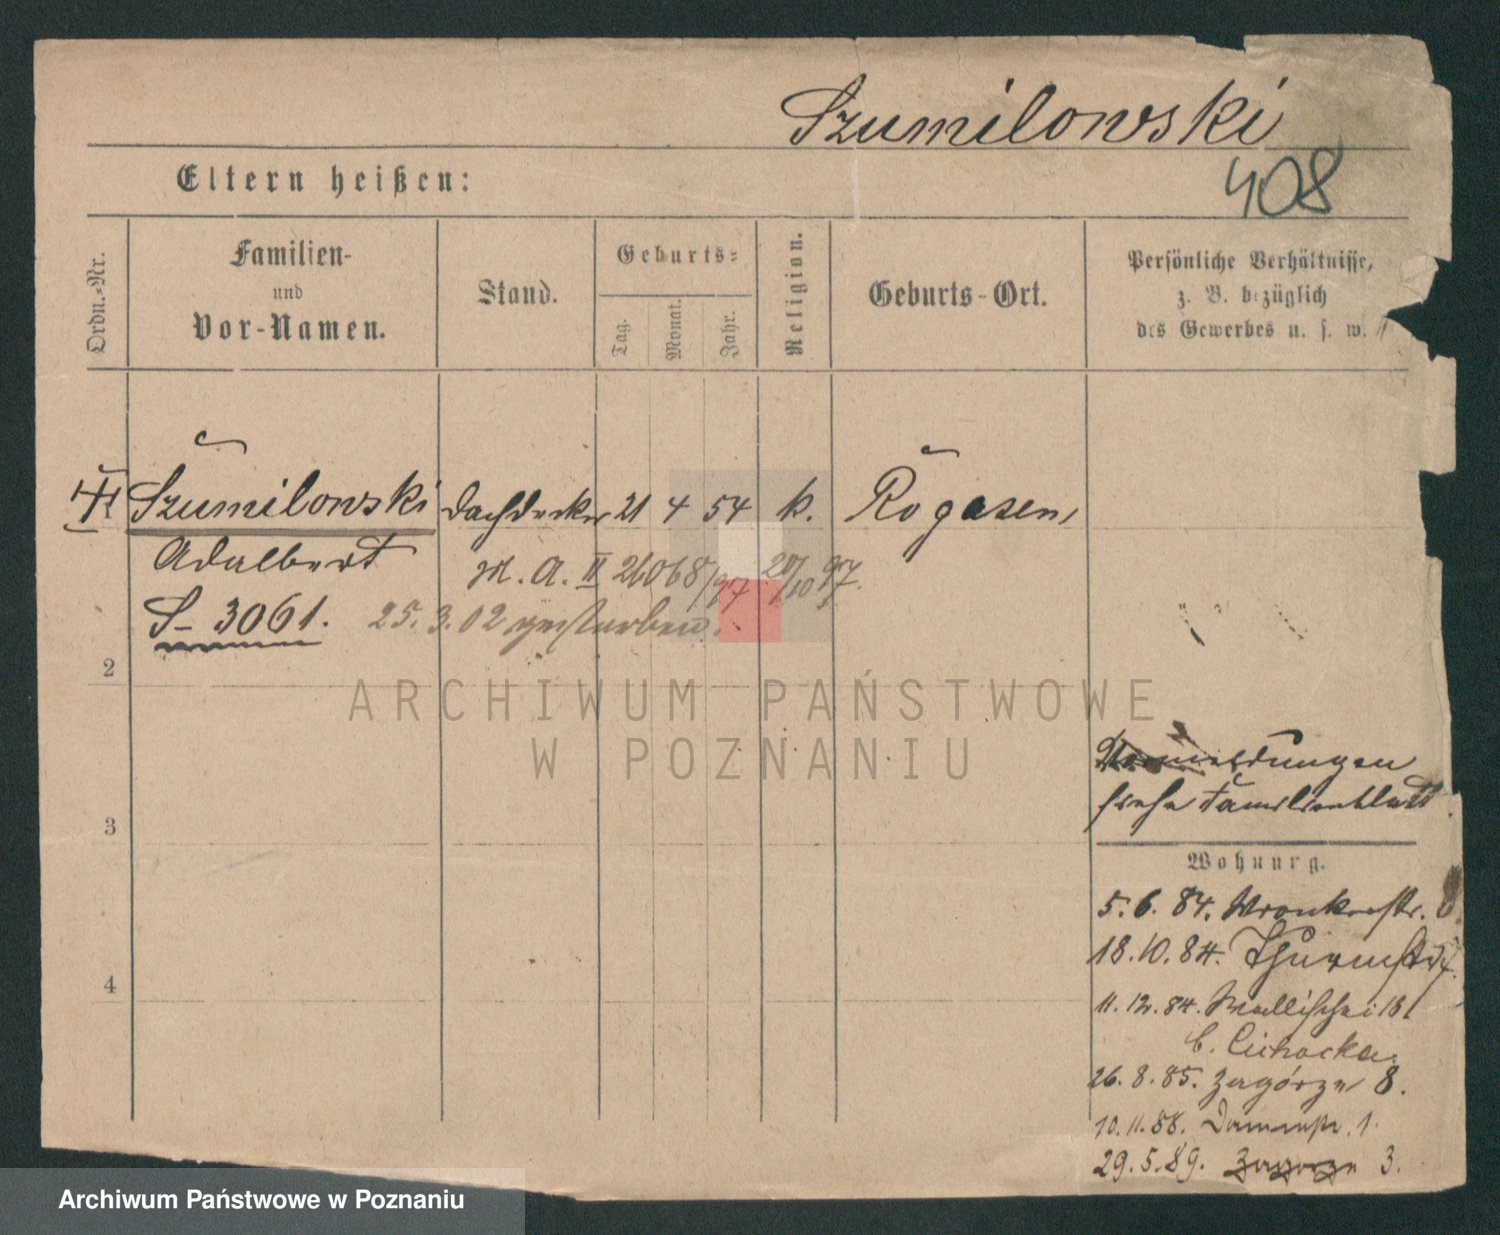 Szumilowski
408
Eltern heißen:
Ordn.-Nr.
Familien-
und
Vor-Namen.
Stand.
Geburts-
Tag.
Monat.
Jahr.
Religion.
Geburts-Ort.
Persönliche Verhältnisse,
z. B. bezüglich
des Gewerbes u. s. w.
Szumilowski Dachdecker 21 4 54 k. Rogasen
Adalbert
M. A. II 26068/97 20/10 97.
S- 3061.
25. 3. 02 gestorben.
2
ARCHIWUM PAŃSTWOWE
W POZNANIU
siehe Familienblatt
3
Wohnung.
5. 6. 84. Wronkerstr.
18. 10. 84. Thurmstr.
4
11. 12. 84. Wallischei
b. Cichocka.
26. 8. 85. Zagórze 8.
10. 11. 88. Dammstr. 1.
29. 5. 89. Zagorze 3.
Archiwum Państwowe w Poznaniu